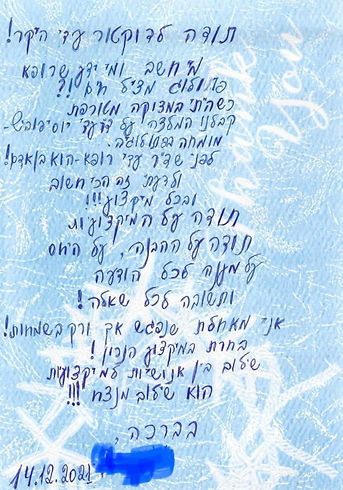 תודה לדוקטור עדי היקר!
מי חשב ומי ידע שרופא
פתולוג מציל חיים!?
כשהייתי במצוקה מטורפת
קבלנו המלצה על ד"ר עדי יוסיפוביץ-
מומחה בפתולוגיה.
לפני שד"ר עדי רופא-הוא בן אדם!
ולדעתי זה הכי חשוב
ובכל מיקצוע!!!
תודה על המיקצועיות
תודה על ההבנה, על היחס
על מענה לכל הודעה
ותשובה לכל שאלה!
אני מאחלת שנפגש אך ורק בשמחות!
בחרת במיקצוע הנכון!
שילוב בין אנושיות למיקצועיות
הוא שילוב מנצח!!!
בברכה,
14.12.2021
Thank You